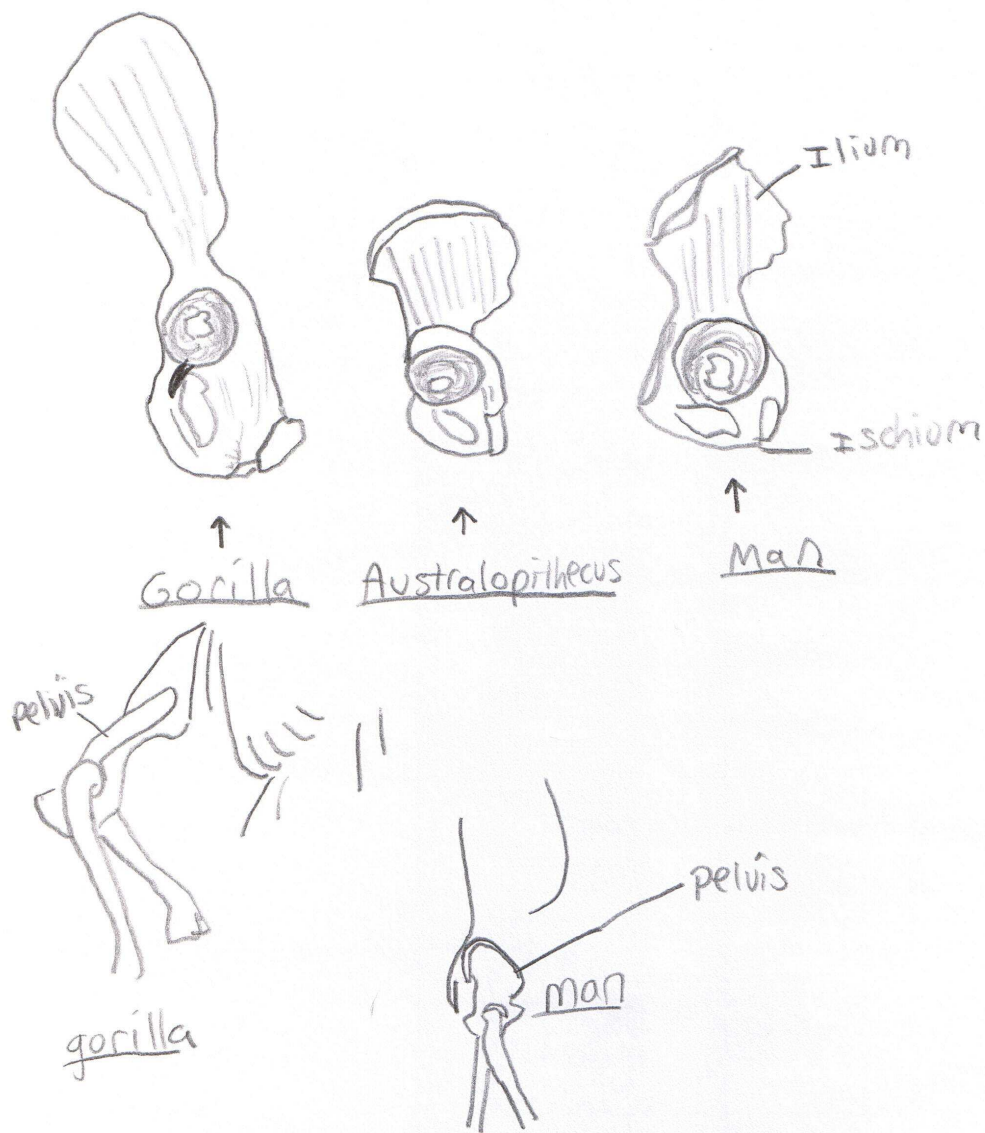 Ilium
Ischium
Gorilla
Australopithecus
Man
pelvis
pelvis
man
gorilla